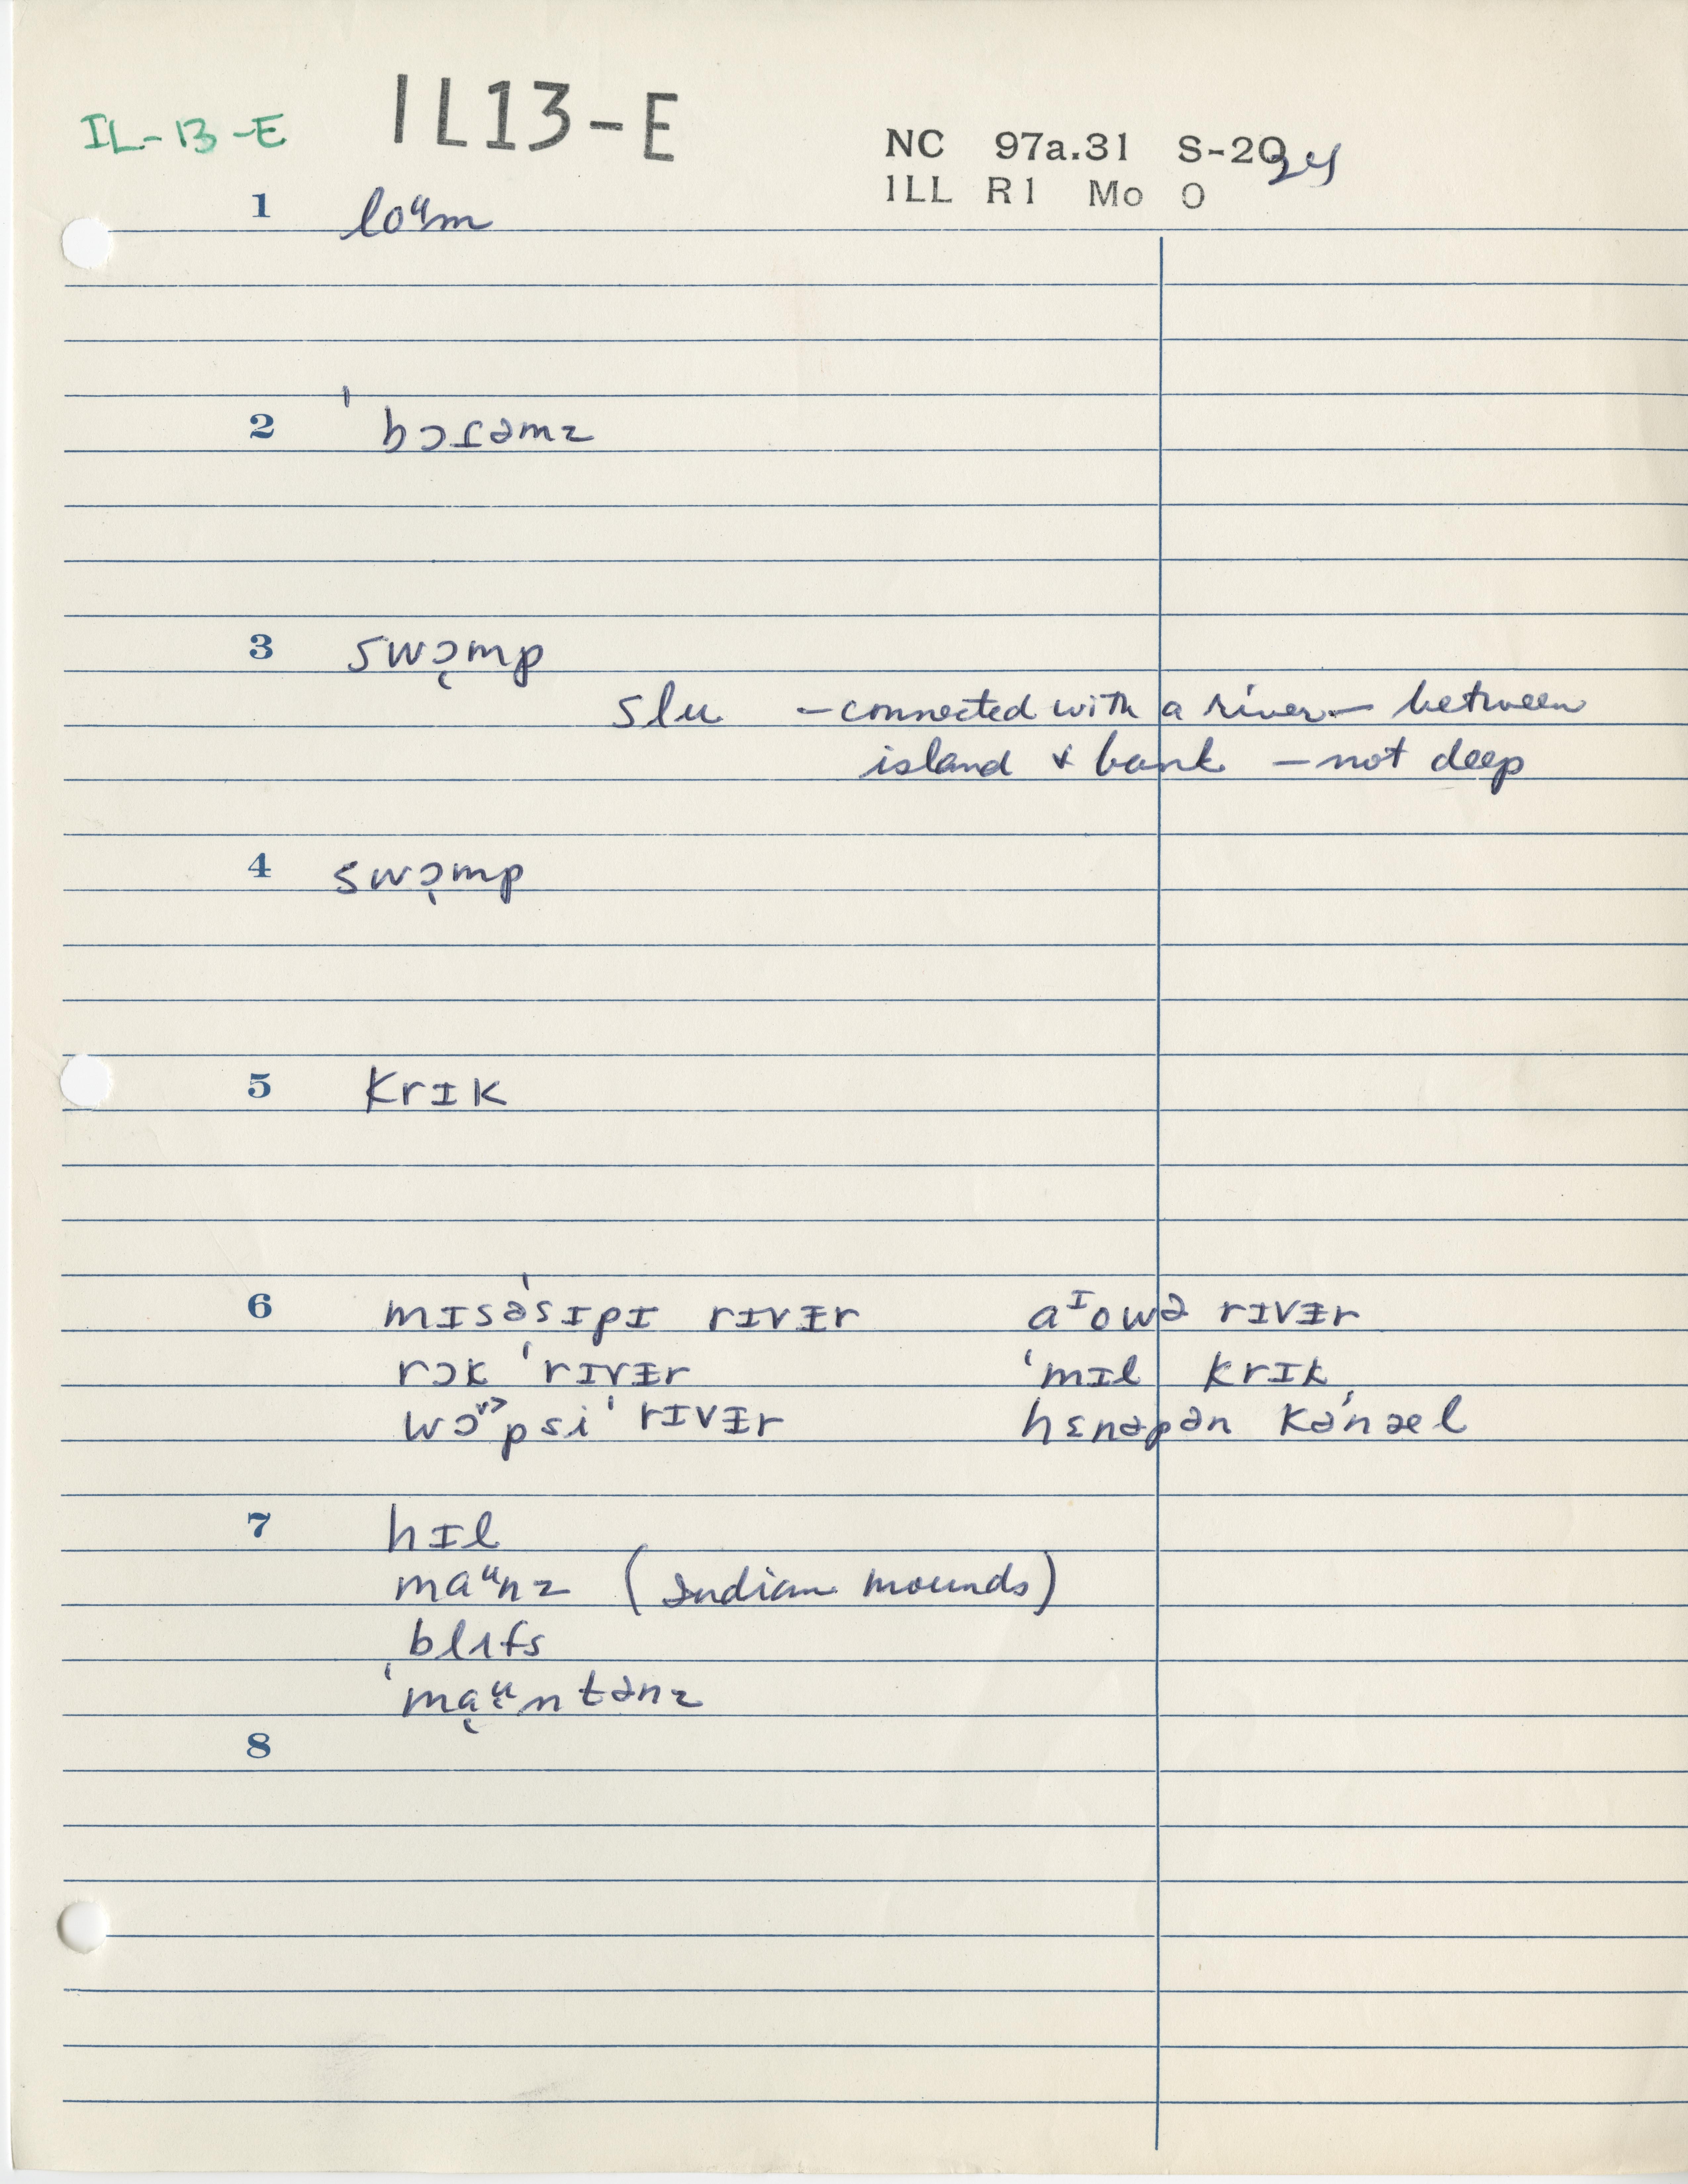 IL-13-E IL13-E
NC 97a.31 S-20 24
ILL R1 Mo O
1 loᵘm
2 ˈbɔɾəmz
3 swɔ̜mp
slu – connected with a river – between
island & bank – not deep
4 swɔ̜mp
5 krɪk
6 mɪsəˈsɪpɪ rɪvɪ̵r aᴵowə rɪvɪ̵r
rɔk ˈrɪvɪ̵r ˈmɪl krɪk
wɔˠ˃psiˈ rɪvɪ̵r hɛnəpən kəˈnæl
7 hɪl
maᵘnz (Indian mounds)
blʌfs
ˈma̜ᵘ̈ntənz
8